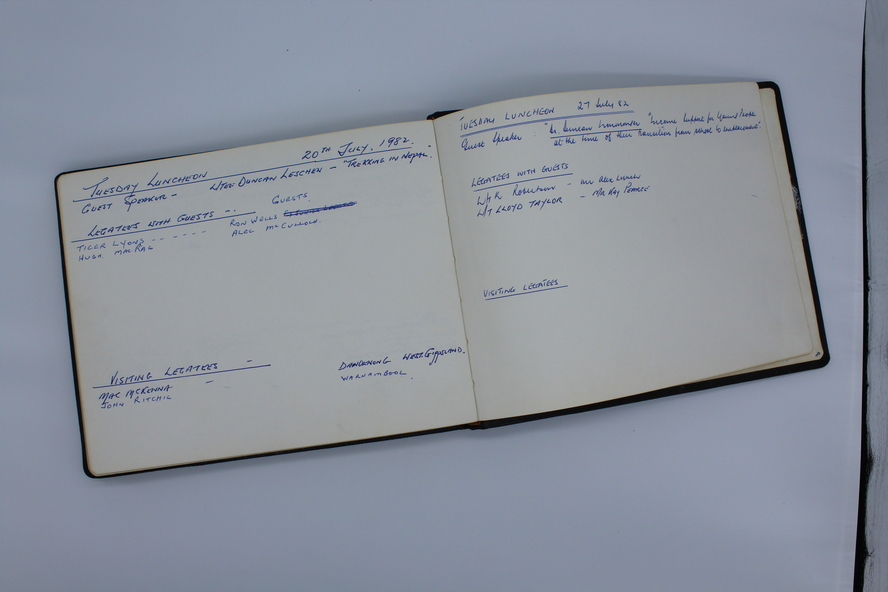 TUESDAY LUNCHEON 20TH JULY, 1982.
GUEST SPEAKER - DUNCAN LESCHEN - "TREKKING IN NEPAL".
LEGATEES WITH GUESTS - GUESTS.
TIGER LYONS - - - - - - RON WELLS
HUGH MACRAE ALEC McCULLOCH.
VISITING LEGATEES -
MAC McKENNA - DANDENONG WEST GIPPSLAND.
JOHN RITCHIE WARNAMBOOL.
TUESDAY LUNCHEON 27 July 82
Guest Speaker : "Mr Duncan "Income Support for Young People
at the time of their transition from school to
LEGATEES WITH GUESTS
L/T R. ROBERTSON -
L/T LLOYD TAYLOR - MR KAY PEARCE
VISITING LEGATEES